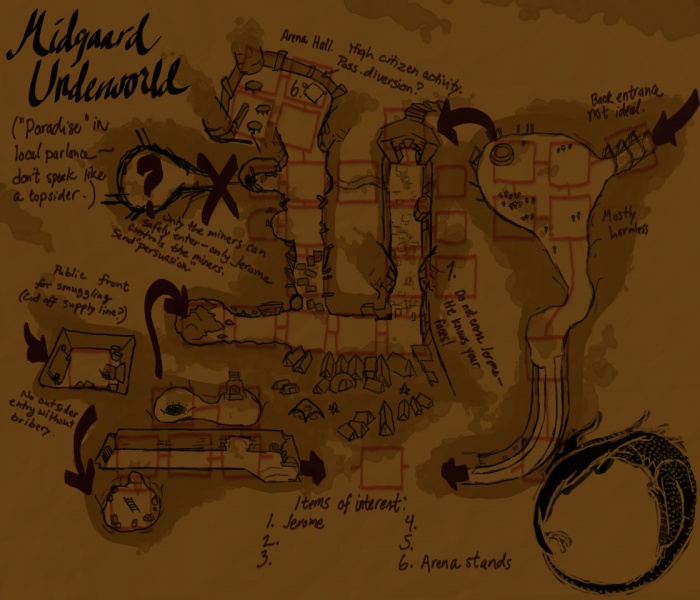 Midgaard
Underworld
("Paradise" in
local parlance—
don't speak like
a topsider.)
Arena Hall. High citizen activity.
Poss. diversion?
6
Back entrance
not ideal.
?
X
Only the miners can
safely enter—only Jerome
controls the miners.
Send "persuasion"
Mostly
harmless
Public front
for smuggling
(Cut off supply line?)
1.
Do not cross Jerome—
He knows your
faces!
No outsider
entry without
bribery.
Items of interest:
1. Jerome
2.
3.
4.
5.
6. Arena stands